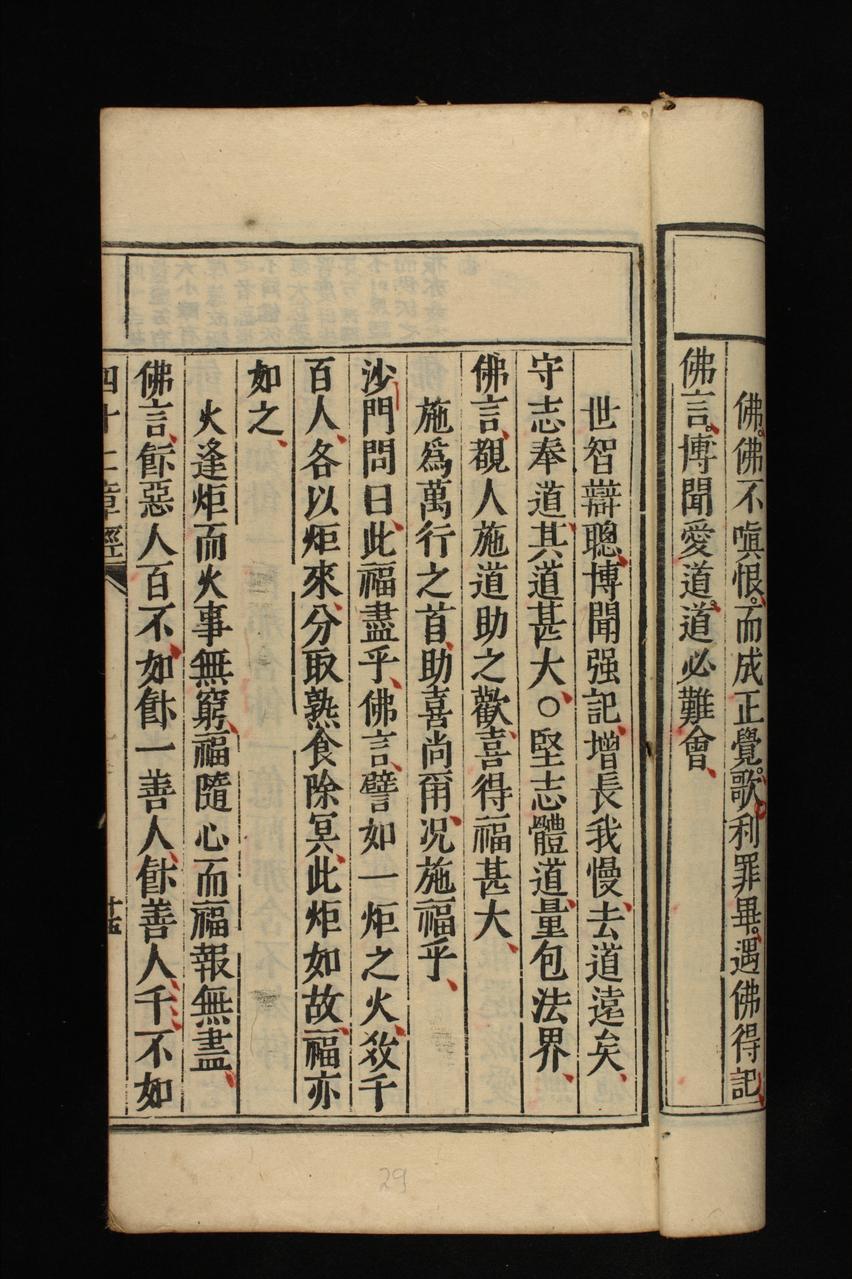 佛。佛不嗔恨。而成正覺。歌利罪畢。遇佛得記、
佛言。博聞愛道。道必難會、
世智辯聰、博聞强記、增長我慢、去道遠矣、
守志奉道、其道甚大、○堅志體道、量包法界、
佛言、覩人施道助之歡喜、得福甚大、
施爲萬行之首、助喜尚爾、况施福乎、
沙門問曰、此福盡乎、佛言、譬如一炬之火、数千
百人、各以炬來、分取熟食除冥、此炬如故、福亦
如之、
火逢炬而火事無窮、福隨心而福報無盡、
佛言、飰惡人百、不如飰一善人、飰善人千、不如
四十二章經
十五
29